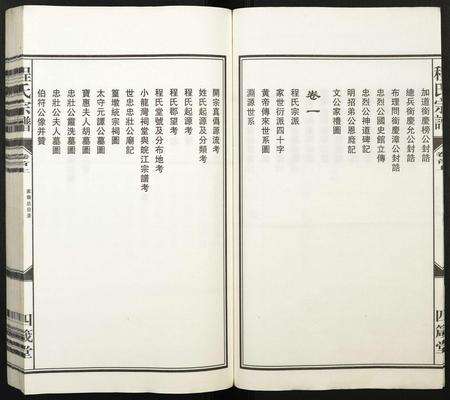 程氏宗譜
四箴堂
加道銜慶榜公封誥
總兵銜慶允公封誥
布理問銜慶漳公封誥
忠烈公國史館立傳
忠烈公神道碑記
明招弟公恩庭記
文公家禮圖
卷一
程氏宗派
家世衍派四十字
黃帝傳來世系圖
淵源世系
開宗真僞源流考
姓氏起源及分類考
程氏起源考
程氏郡望考
程氏堂號及分布地考
小龍灣祠堂與皖江宗譜考
世忠忠壯公廟記
篁墩統宗祠圖
太守元譚公墓圖
寶惠夫人胡墓圖
忠壯公靈洗墓圖
忠壯公夫人墓圖
伯符公像并贊
程氏宗譜
四箴堂